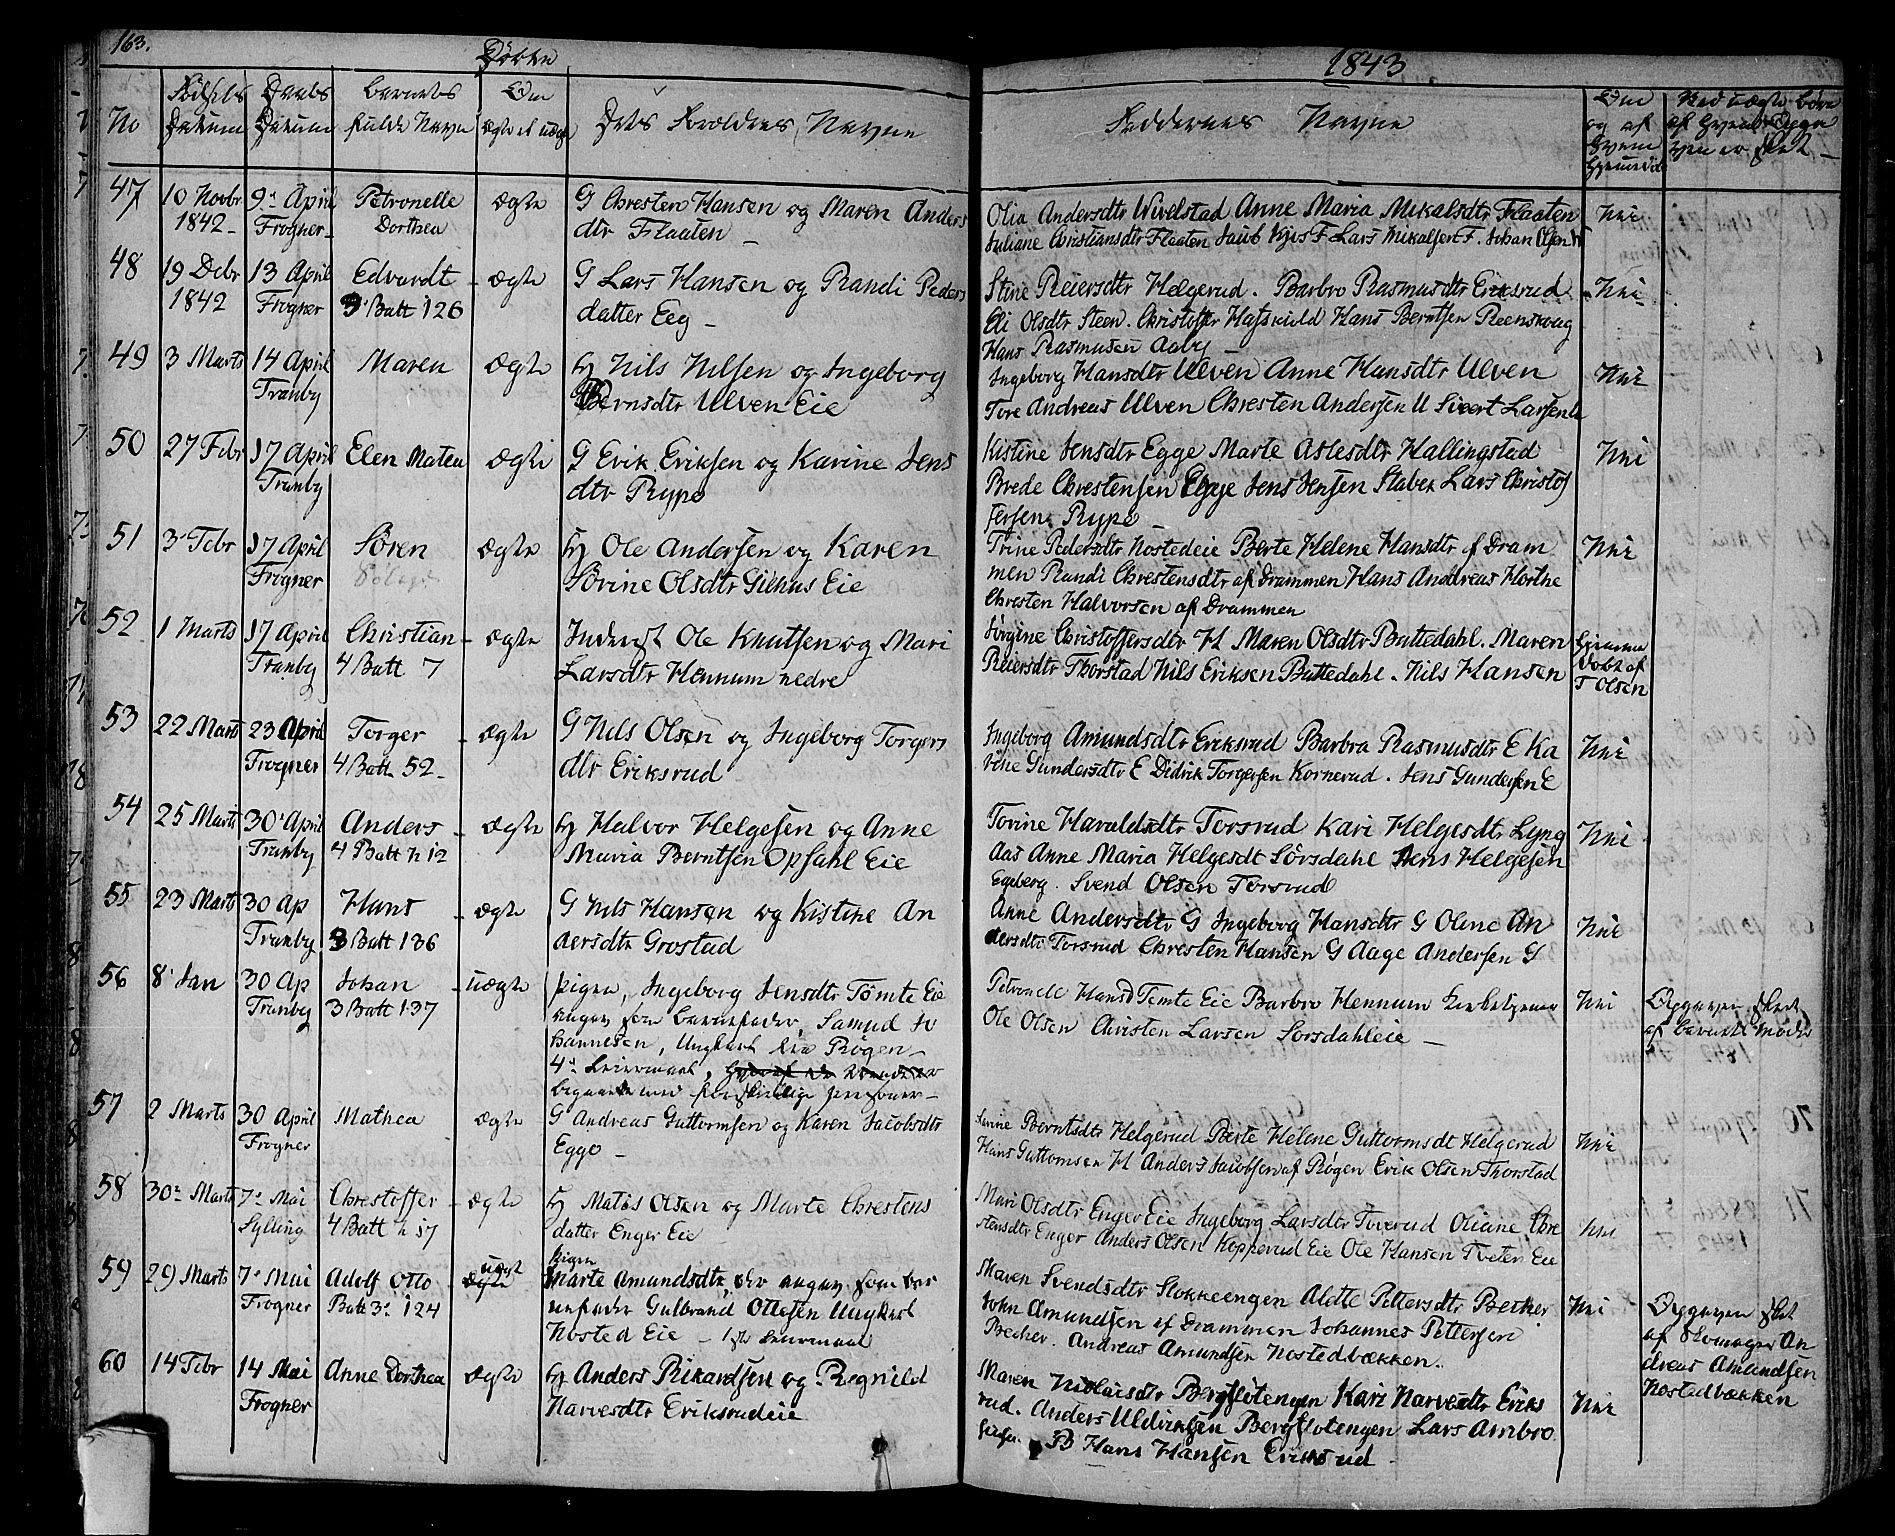 163.
Döbte
1843
No
Födsels Datum
Daabs Datum
Barnets fulde Navn
Om ægte el uægte
Dets Forældres Navne
Faddernes Navne
Om og af Hvem Hjemmedöbt
Ved uægte Börn af Hvem Opgaven er skeet
47
10 Novbr 1842
9 April Frogner
Petronelle Dorthea
ægte
G Chresten Hansen og Maren Anders
dtr Flaaten
Olia Andersdtr Wivelstad Anne Maria Mikalsdtr Flaaten
Juliane Christiansdtr Flaaten Jacob Kjos F Lars Mikalsen F. Johan
Nei
48
19 Debr 1842
13 April Frogner
Edvardt
3 Batt 126
ægte
G Lars Hansen og Randi Peders
datter Eeg
Stine Reiersdtr Helgerud. Barbro Rasmusdtr Eriksrud
Eli Olsdtr Steen. Christoffer Hafskiold Hans Berntsen Reenskoug
Hans Rasmusen Aaby
Nei
49
3 Marts
14 April Tranby
Maren
ægte
Hm Nils Nilsen og Ingeborg
Berntsdtr Ulven Eie
Ingeborg Hansdtr Ulven Anne Hansdtr Ulven
Tore Andreas Ulven Chresten Andersen U Sivert Larsen
Nei
50
27 Febr
17 April Tranby
Elen Matea
ægte
G Erik Eriksen og Karine Jens
dtr Rype
Kistine Jensdtr Egge Marte Aslesdtr Hallingstad
Brede Chrestensen Egge Jens Jensen Staber Lars Christof
fersen Rype
Nei
51
3 Febr
17 April Frogner
Sören
ægte
Hm Ole Andersen og Karen
Sörine Olsdtr Gilhus Eie
Trine Pedersdtr Nostedeie Berte Helene Hansdtr af Dram
men Randi Chrestensdtr af Drammen Hans Andreas Horthe
Chresten Halvorsen af Drammen
Nei
52
1 Marts
17 April Tranby
Christian
4 Batt 7
ægte
Inderst Ole Knutsen og Mari
Larsdtr Hennum nedre
Jörgine Christoffersdtr H Maren Olsdtr Buttedahl. Maren
Reiersdtr Thorstad Nils Eriksen Buttedahl. Nils Hansen
Hjemmedöbt af T Olsen
53
22 Marts
23 April Frogner
Torger
4 Batt 52
ægte
G Nils Olsen og Ingeborg Torgers
dtr Eriksrud
Ingeborg Amundsdtr Eriksrud Barbra Rasmusdtr E Ka
rine Gundersdtr E Didrik Torgersen Kornerud. Jens Gundersen E
Nei
54
25 Marts
30 April Tranby
Anders
4 Batt N 12
ægte
Hm Halvor Helgesen og Anne
Maria Berntsen Opsahl Eie
Tovine Haraldsdtr Torsrud Kari Helgesdtr Lyng
aas Anne Maria Helgesdt Sörsdahl Jens Helgesen
Egeberg. Svend Olsen Torsrud
Nei
55
23 Marts
30 Ap Tranby
Hans
3 Batt 136
ægte
G Nils Hansen og Kistine An
dersdtr Grostad
Anne Andersdtr G Ingeborg Hansdtr G Oline An
dersdtr Torsrud Chresten Hansen G Aage Andersen G
Nei
56
8 Jan
30 Ap Tranby
Johan
3 Batt 137
uægte
Pigen, Ingeborg Jensdtr Tömte Eie
angav som Barnefader, Samud Jo
hannesen, Ungkarl fra Rögen
4de Leiermaal,
begaaet med forskjellige Personer
Petronell Hansd Temte Eie Barbro Hennum
Ole Olsen Christen Larsen Sorsdahleie
Nei
Opgaven skeet af Barnets Moder
57
2 Marts
30 April Frogner
Mathea
ægte
G Andreas Guttormsen og Karen Jacobsdtr
Egge
Karine Berntsdtr Helgerud Berte Helene Guttormsdt Helgerud
Hans Guttomsen H Anders Jacobsen af Rögen Erik Olsen Thorstad
Nei
58
30 Marts
7 Mai Sylling
Chrestoffer
4 Batt N 57
ægte
Hm Matis Olsen og Marte Chrestens
datter Enger Eie
Mari Olsdtr Enger Eie Ingeborg Larsdtr Toverud Oliane Chre
stensdtr Enger Anders Olsen Kopperud Eie Ole Hansen Tveter Eie
Nei
59
29 Marts
7 Mai Frogner
Adolf Otto
Batt 3 124
uægt
ægte
Pigen
Marte Amundsdtr, der angav som Bar
nefader Gulbrand Ottesen Ungkarl
Nosted Eie - 1ste Leiermaal
Maren Svendsdtr Stokkeengen Alette Pettersdtr Becher
John Amundsen af Drammen Johannes Pettersen
Becher. Andreas Amundsen Nostedbækken.
Nei
Opgaven skeet af Skomager An
dreas Amundsen Nostedbækken
60
14 Febr
14 Mai Frogner
Anne Dorthea
ægte
Hm Anders Rikardsen og Regnild
Narvesdtr Eriksrudeie
Maren Nicolaisdtr Bergflotengen Kari Narvesdtr Eriks
rud. Anders Uldriksen Bergflotengen Lars Ambro
siusen. B Hans Hansen Eriksrud
Nei